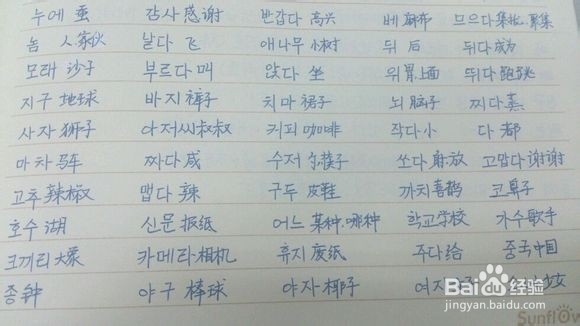 누에 蚕 감사 感谢 반갑다 高兴 베 麻布 므으다 集批、聚集
놈 人家伙 날다 飞 애나무 小树 뒤 后 뒤다 成为
모래 沙子 부르다 叫 앉다 坐 위 胃.上面 뛰다 跑.跳
지구 地球 바지 裤子 치마 裙子 뇌 脑子 찌다 蒸
사자 狮子 아저씨 叔叔 커피 咖啡 작다 小 다 都
마차 马车 짜다 咸 수저 쏘다 射.放 고맙다 谢谢
고추 辣椒 맵다 辣 구두 皮鞋 까치 喜鹊 코 鼻子
호수 湖 신문 报纸 어느 某种.哪种 학교 学校 가수 歌手
코끼리 大象 카메라 相机 휴지 废纸 주다 给 중국 中国
종 钟 야구 棒球 야자 椰子 여자 女
Baidu 经验
jingyan.baidu.com
Sunflow